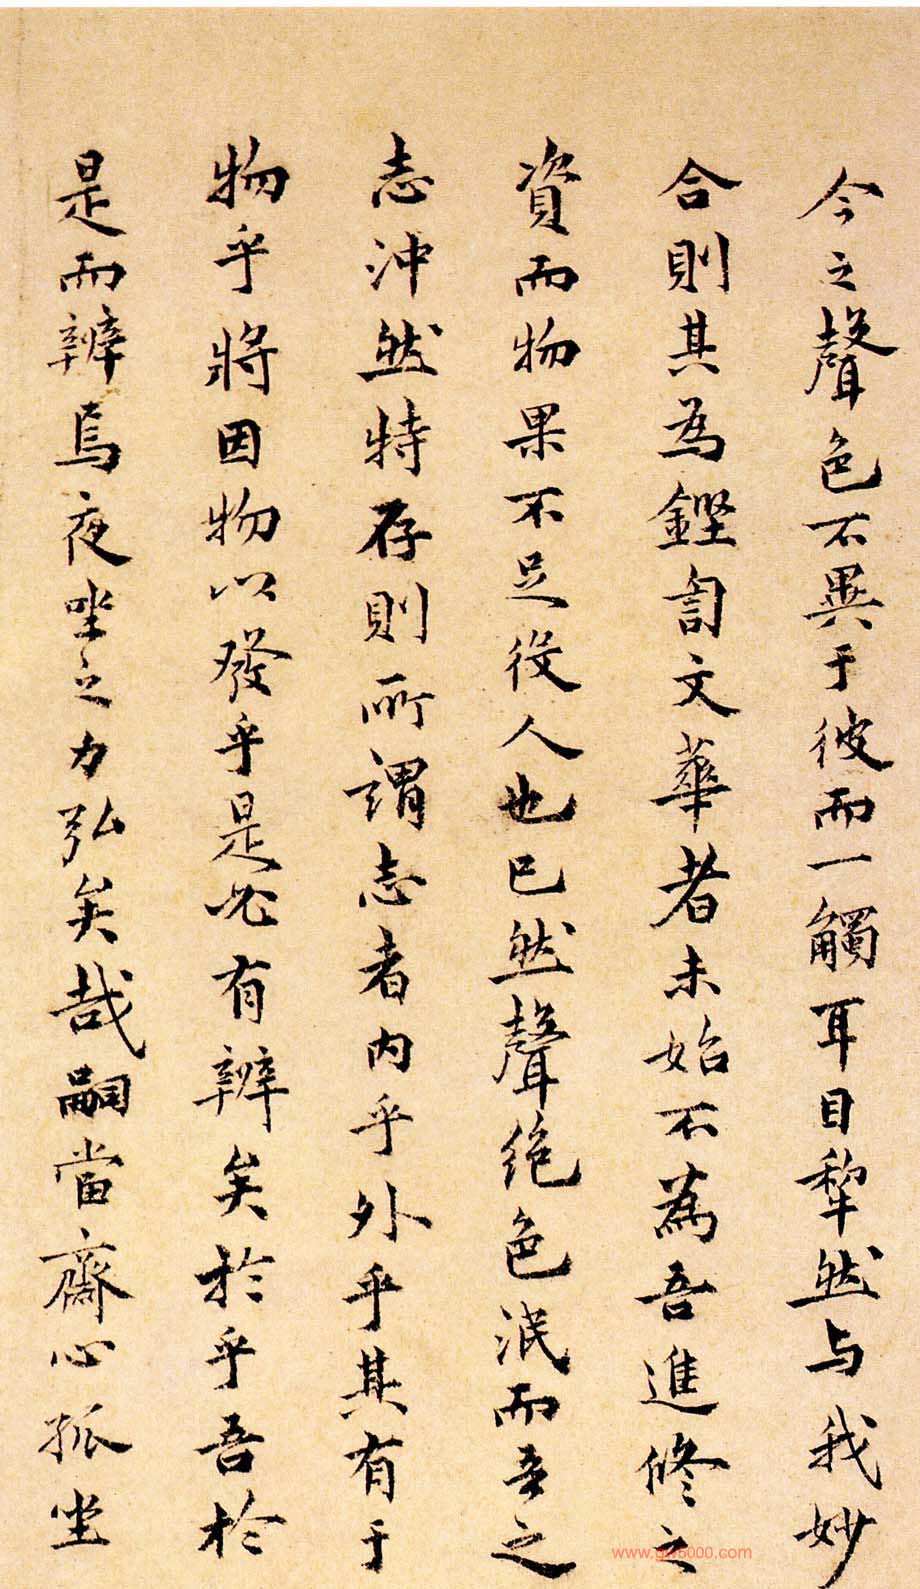 今之聲色不異于彼而一觸耳目犂然与我妙
合則其為鏗訇文華者未始不為吾進修之
資而物果不足役人也已然聲絶色泯而吾之
志沖然特存則所謂志者内乎外乎其有于
物乎將因物以發乎是必有辨矣於乎吾於
是而辨焉夜坐之力弘矣哉嗣當齋心孤坐
www.gw5000.com